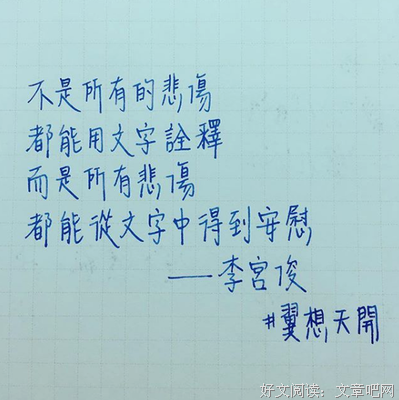 不是所有的悲傷
都能用文字詮釋
而是所有悲傷
都能從文字中得到安慰
——李宮俊
#翼想天開
好文阅读：文章吧网